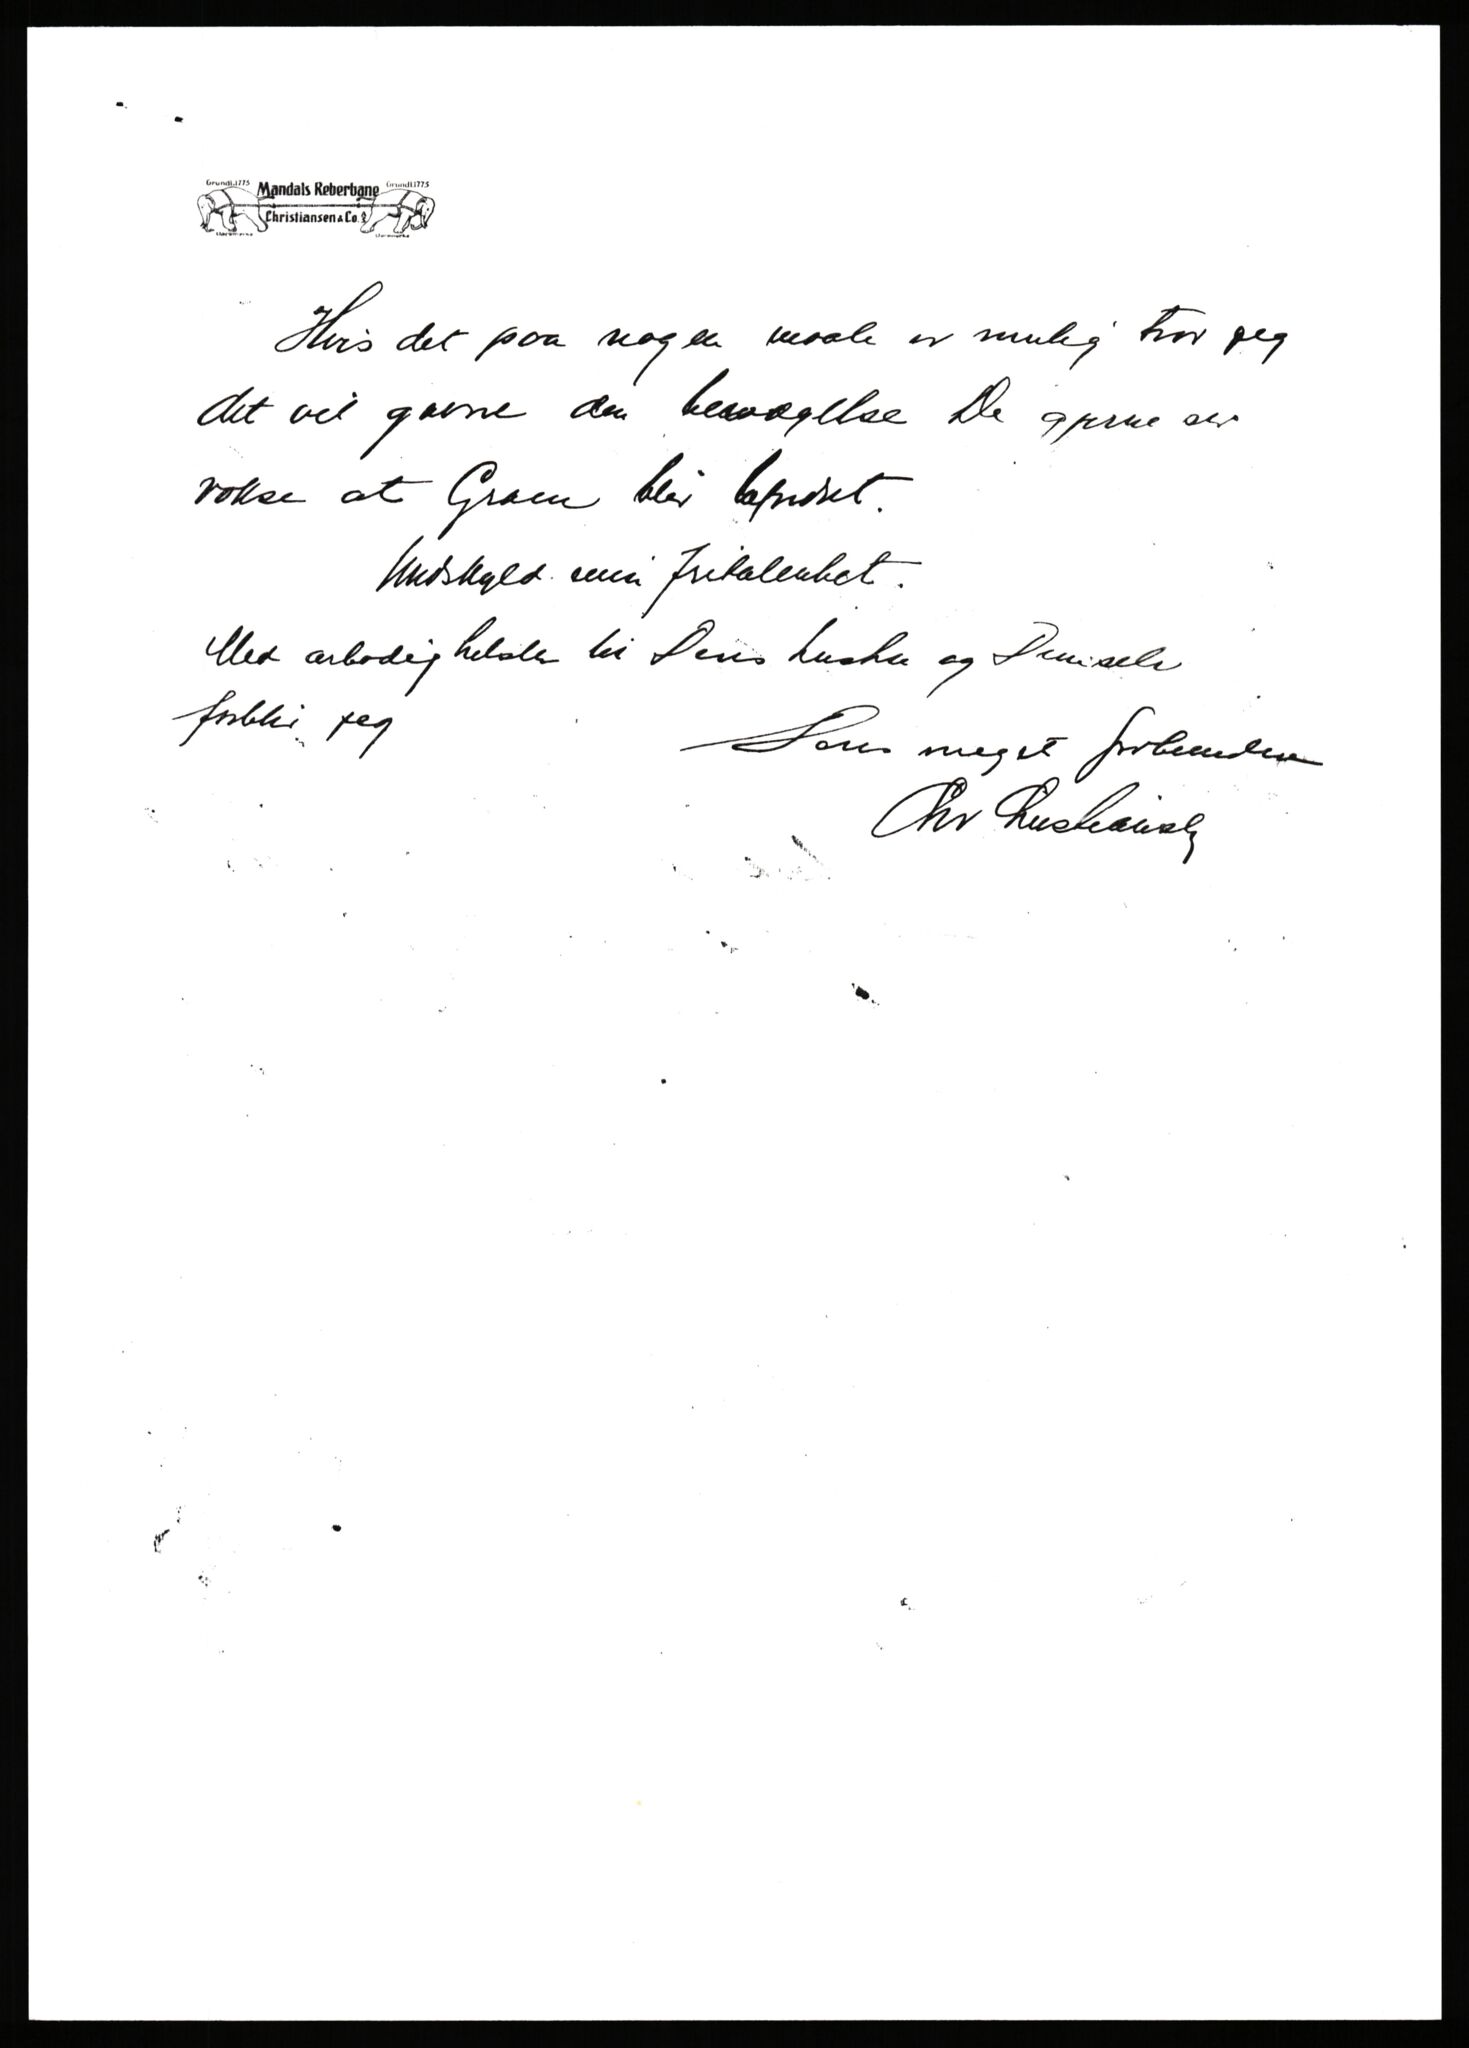 Grundl.1775 Mandals Reberbane Grundl.1775
Christiansen & Co. A/S
Hvis det paa nogen maate er mulig tror jeg
det vil gavne den bevægelse De gjerne ser
vokse at Gram blir befridt.
Undskyld min fritalenhet.
Med ærbødig hilsen til Deres hustru og Dem selv
forblir jeg
Deres meget forbundne
Chr Christiansen